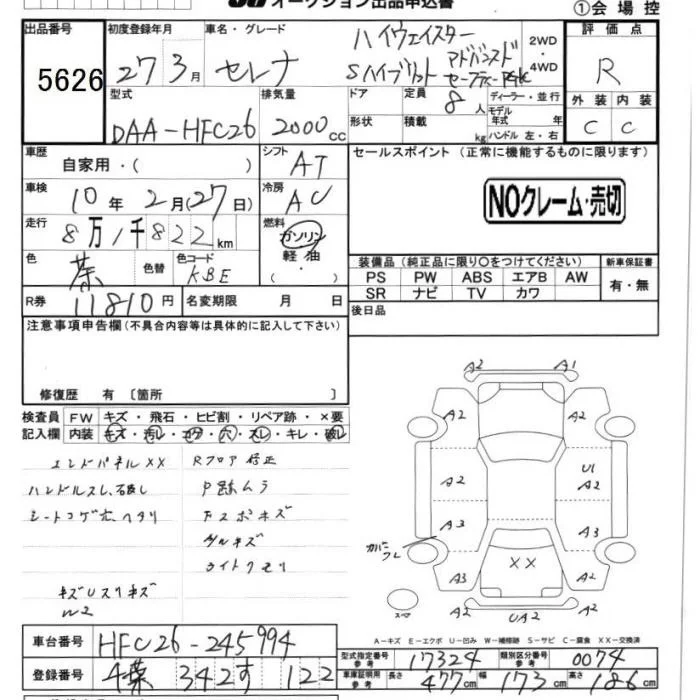 オークション出品申込書
①会場控
出品番号
5626
初度登録年月
27 3月
車名・グレード
セレナ
ハイウェイスター
Sハイブリット アドバンスド
セーフティーPK
2WD
4WD
評価点
R
型式
DAA-HFC26
排気量
2000 cc
ドア
形状
定員
8人
積載
kg
ディーラー・並行
モデル
年式 年
ハンドル 左・右
外装 内装
C C
車歴
自家用・( )
シフト
AT
セールスポイント (正常に機能するものに限ります)
NOクレーム・売切
車検
10年 2月(27日)
冷房
AC
走行
8万1千822km
燃料
ガソリン
軽油
( )
色
茶
色替
色コード
KBE
装備品 (純正品に限り○をつけてください)
PS PW ABS エアB AW
SR ナビ TV カワ
新車保証書
有・無
R券
11810円
名変期限 月 日
後日品
注意事項申告欄(不具合内容等は具体的に記入して下さい)
修復歴 有 〔箇所 〕
検査員
記入欄
FW キズ・飛石・ヒビ割・リペア跡・×要
内装 キズ・汚レ・コゲ・穴・スレ・キレ・破レ
エンドパネルXX Rフロア修正
ハンドルスレ、破レ
シートコゲ穴、ヘタリ
Fスポキズ
ライトクモリ
W2
A2 A1
A2 A2
A2 U1
A2
A3 A3
カバー
XX
A3 A2
UA2
スペア
A-キズ E-エクボ U-凹み W-補修跡 S-サビ C-腐食 XX-交換済
車台番号
HFC26-245994
登録番号
千葉 342 す 122
型式指定番号
参考
17324
類別区分番号
参考
0074
車庫証明用
参考
長さ 477cm 幅 173cm 高さ 186cm